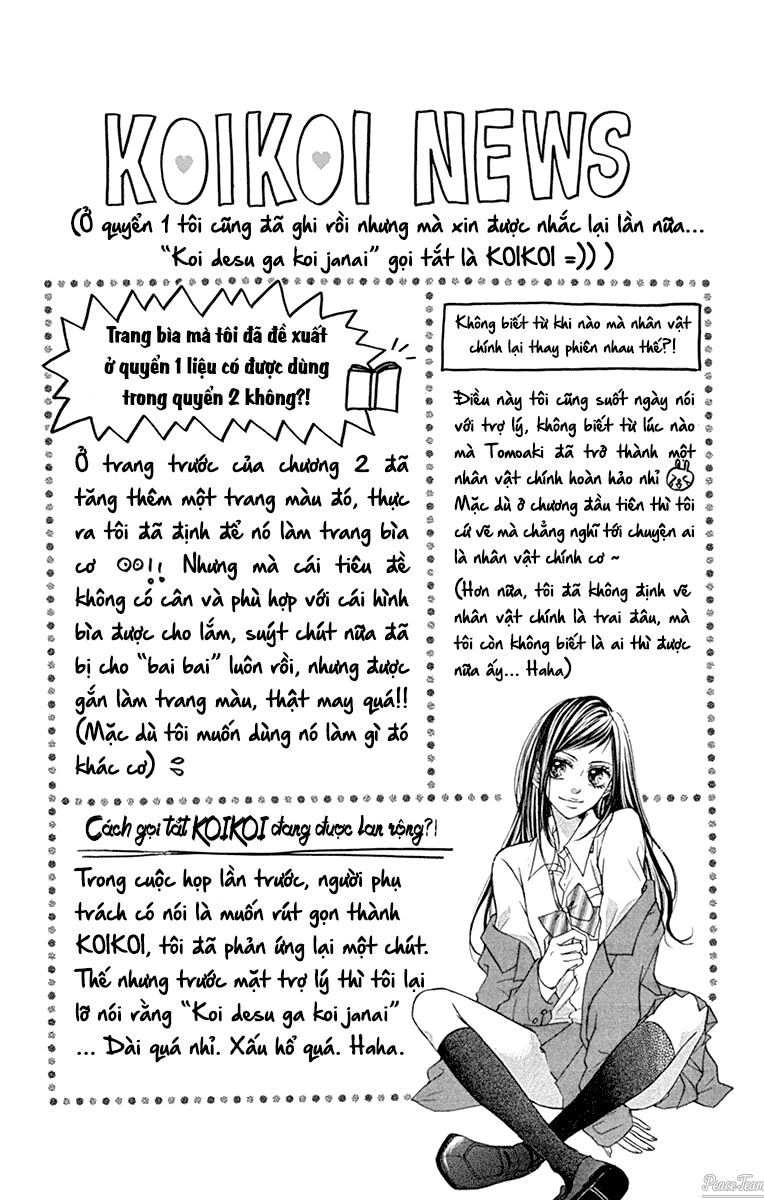 KOIKOI NEWS
(Ở quyển 1 tôi cũng đã ghi rồi nhưng mà xin được nhắc lại lần nữa...
"Koi desu ga koi janai" gọi tắt là KOIKOI =)) )
Trang bìa mà tôi đã đề xuất
ở quyển 1 liệu có được dùng
trong quyển 2 không?!
Ở trang trước của chương 2 đã
tăng thêm một trang màu đó, thực
ra tôi đã định để nó làm trang bìa
cơ !! Nhưng mà cái tiêu đề
không có cân và phù hợp với cái hình
bìa được cho lắm, suýt chút nữa đã
bị cho "bai bai" luôn rồi, nhưng được
gắn làm trang màu, thật may quá!!
(Mặc dù tôi muốn dùng nó làm gì đó
khác cơ)
Không biết từ khi nào mà nhân vật
chính lại thay phiên nhau thế?!
Điều này tôi cũng suốt ngày nói
với trợ lý, không biết từ lúc nào
mà Tomoaki đã trở thành một
nhân vật chính hoàn hảo nhỉ
Mặc dù ở chương đầu tiên thì tôi
cứ vẽ mà chẳng nghĩ tới chuyện ai
là nhân vật chính cơ ~
(Hơn nữa, tôi đã không định vẽ
nhân vật chính là trai đâu, mà
tôi còn không biết là ai thì được
nữa ấy... Haha)
Cách gọi tắt KOIKOI đang được lan rộng?!
Trong cuộc họp lần trước, người phụ
trách có nói là muốn rút gọn thành
KOIKOI, tôi đã phản ứng lại một chút.
Thế nhưng trước mặt trợ lý thì tôi lại
lỡ nói rằng "Koi desu ga koi janai"
... Dài quá nhỉ. Xấu hổ quá. Haha.
PeaceTeam